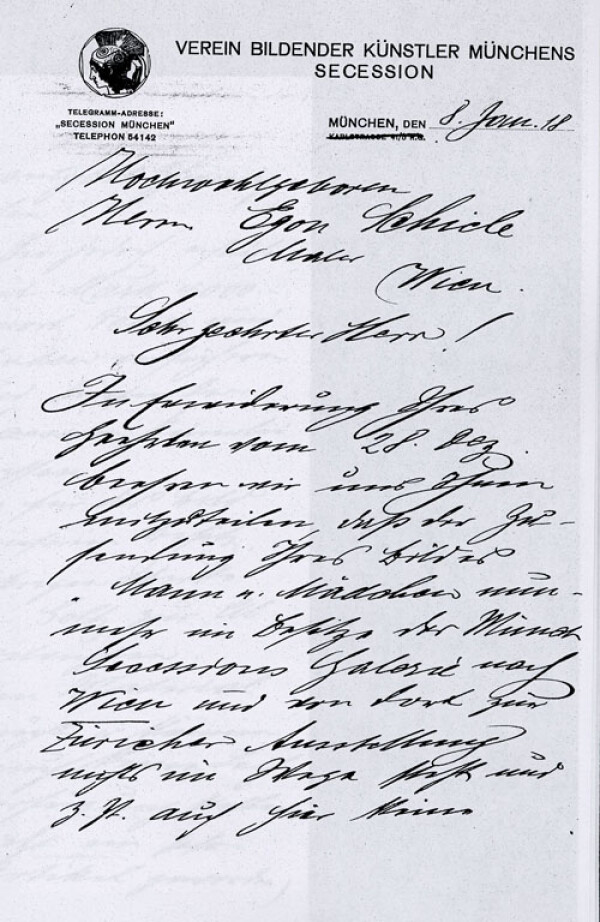 VEREIN BILDENDER KÜNSTLER MÜNCHENS
SECESSION
TELEGRAMM-ADRESSE:
„SECESSION MÜNCHEN"
TELEPHON 54142
MÜNCHEN, DEN 8. Jan. 18
Hochwohlgeboren
Herrn Egon Schiele
Maler
Wien.
Sehr geehrter Herr!
In Erwiderung Ihres
Geehrten vom 28. Dez.
beehren wir uns Ihnen
mitzuteilen, daß der Zu-
sendung Ihres Bildes
„Mann u. Mädchen nun-
mehr im Besitze der Münch
Secessions Galerie nach
Wien und von dort zur
Züricher Ausstellung
nichts im Wege steht und
z. Zt. auch hier keine